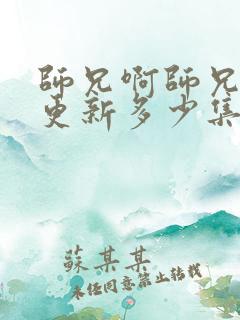 師兄啊師兄
更新多少集
蘇某某
未經同意禁止转载